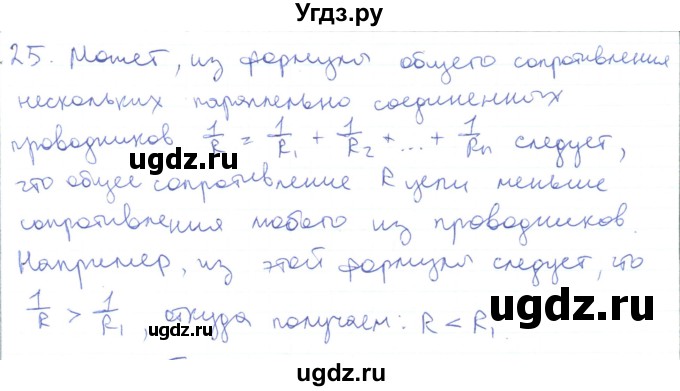 Угдз.ру
25. Может, из формулы общего сопротивления
нескольких параллельно соединенных
проводников 1/R = 1/R₁ + 1/R₂ + ... + 1/Rn следует,
ugdz.ru
ugdz.ru
что общее сопротивление R цепи меньше
сопротивления любого из проводников.
Например, из этой формулы следует, что
ugdz.ru
1/R > 1/R₁, откуда получаем: R < R₁.
ugdz.ru